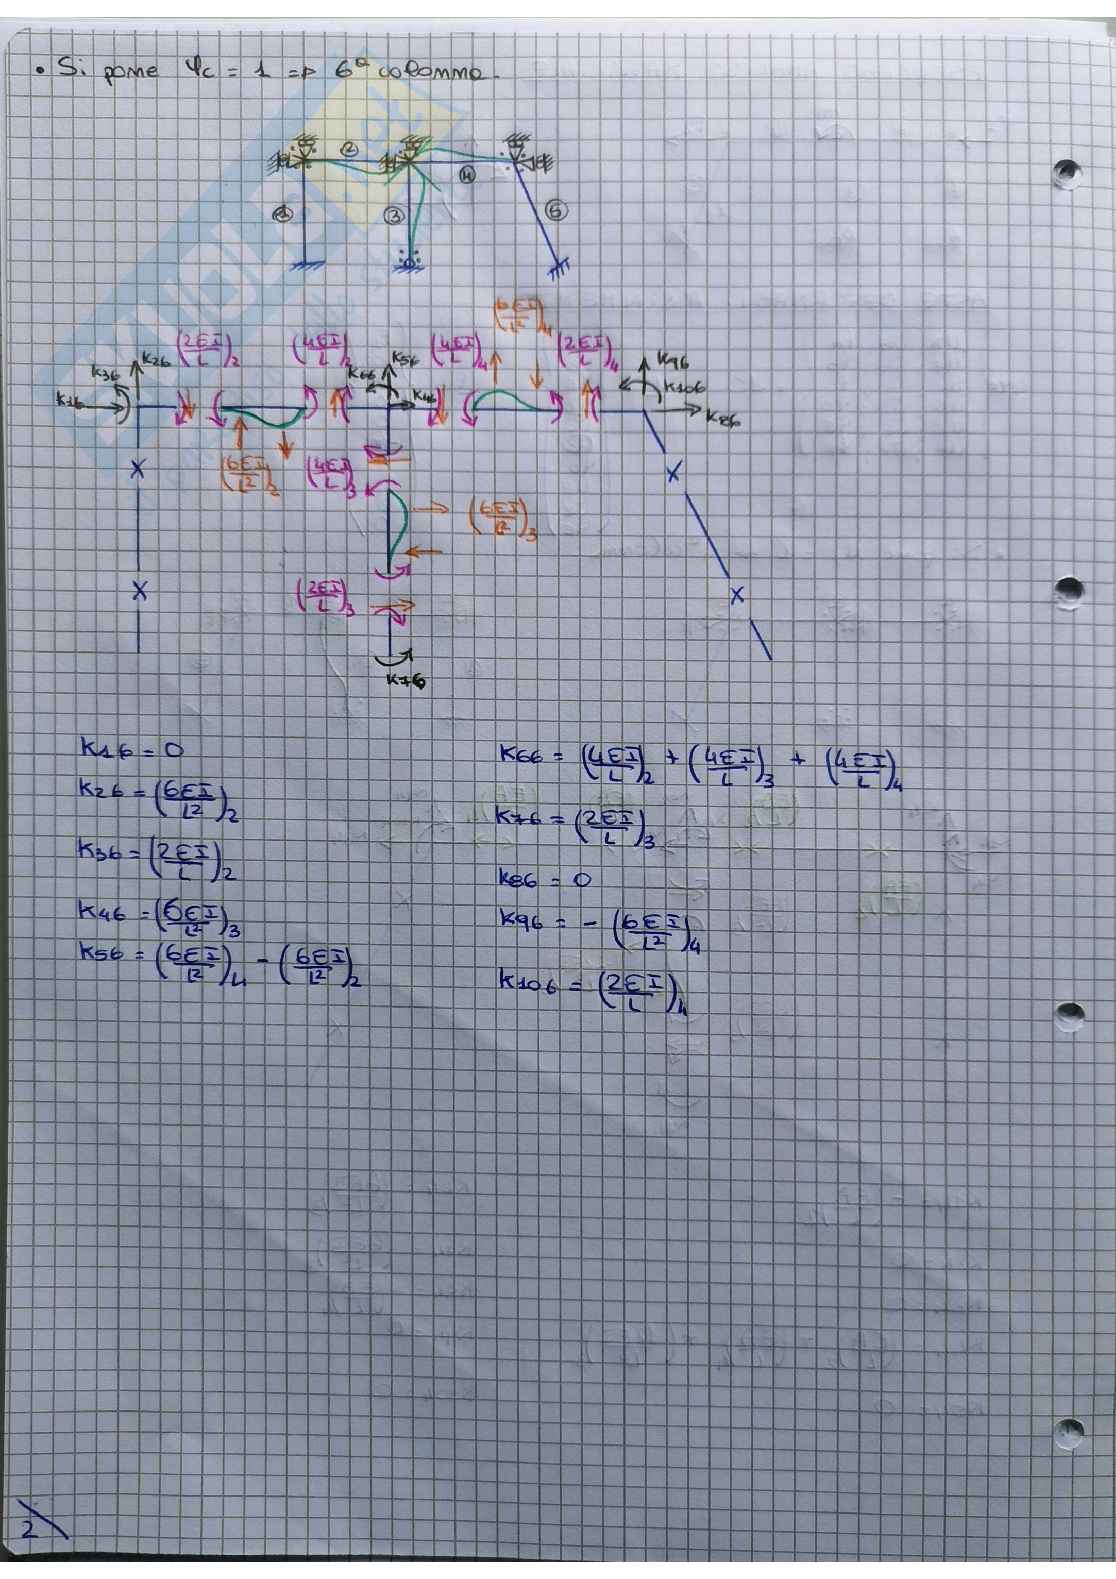 • Si pone φc = 1 => 6ª colonna.
② ④
① ③ ⑤
(6EI/L²)₄
K26 (2EI/L)₂ (4EI/L)₂ K56 (4EI/L)₄ (2EI/L)₄ K96
K36 K66 K106
K16 K46 K86
(6EI/L²)₂ (4EI/L)₃
(6EI/L²)₃
(2EI/L)₃
K76
K16 = 0
K26 = (6EI/L²)₂
K36 = (2EI/L)₂
K46 = (6EI/L²)₃
K56 = (6EI/L²)₄ - (6EI/L²)₂
K66 = (4EI/L)₂ + (4EI/L)₃ + (4EI/L)₄
K76 = (2EI/L)₃
K86 = 0
K96 = - (6EI/L²)₄
K106 = (2EI/L)₄
2